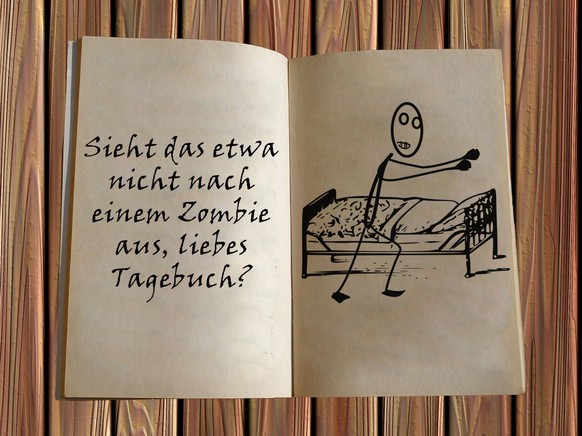 Sieht das etwa
nicht nach
einem Zombie
aus, liebes
Tagebuch?